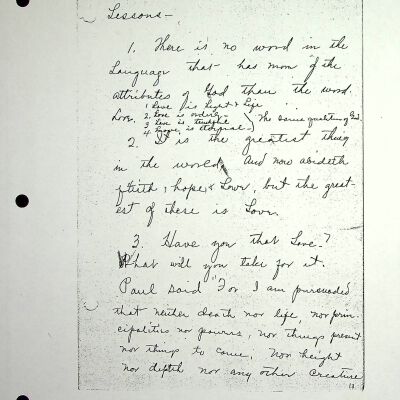 Lessons—
1. There is no word in the
Language that has more of the
attributes of God than the word.
1 Love is Light & Life
Love. 2. Love is orderly
3 Love is
4 is eternal— } The same qualities of God.
2. It is the greatest thing
in the world, And now abideth
faith, hope, & Love, but the great-
est of these is Love.
3. Have you that Love?
What will you take for it.
Paul said "For I am pursuaded
that neither death nor life, nor prin
cipalities nor powers, nor things present
nor things to come, Nor height
nor depth nor any other creature